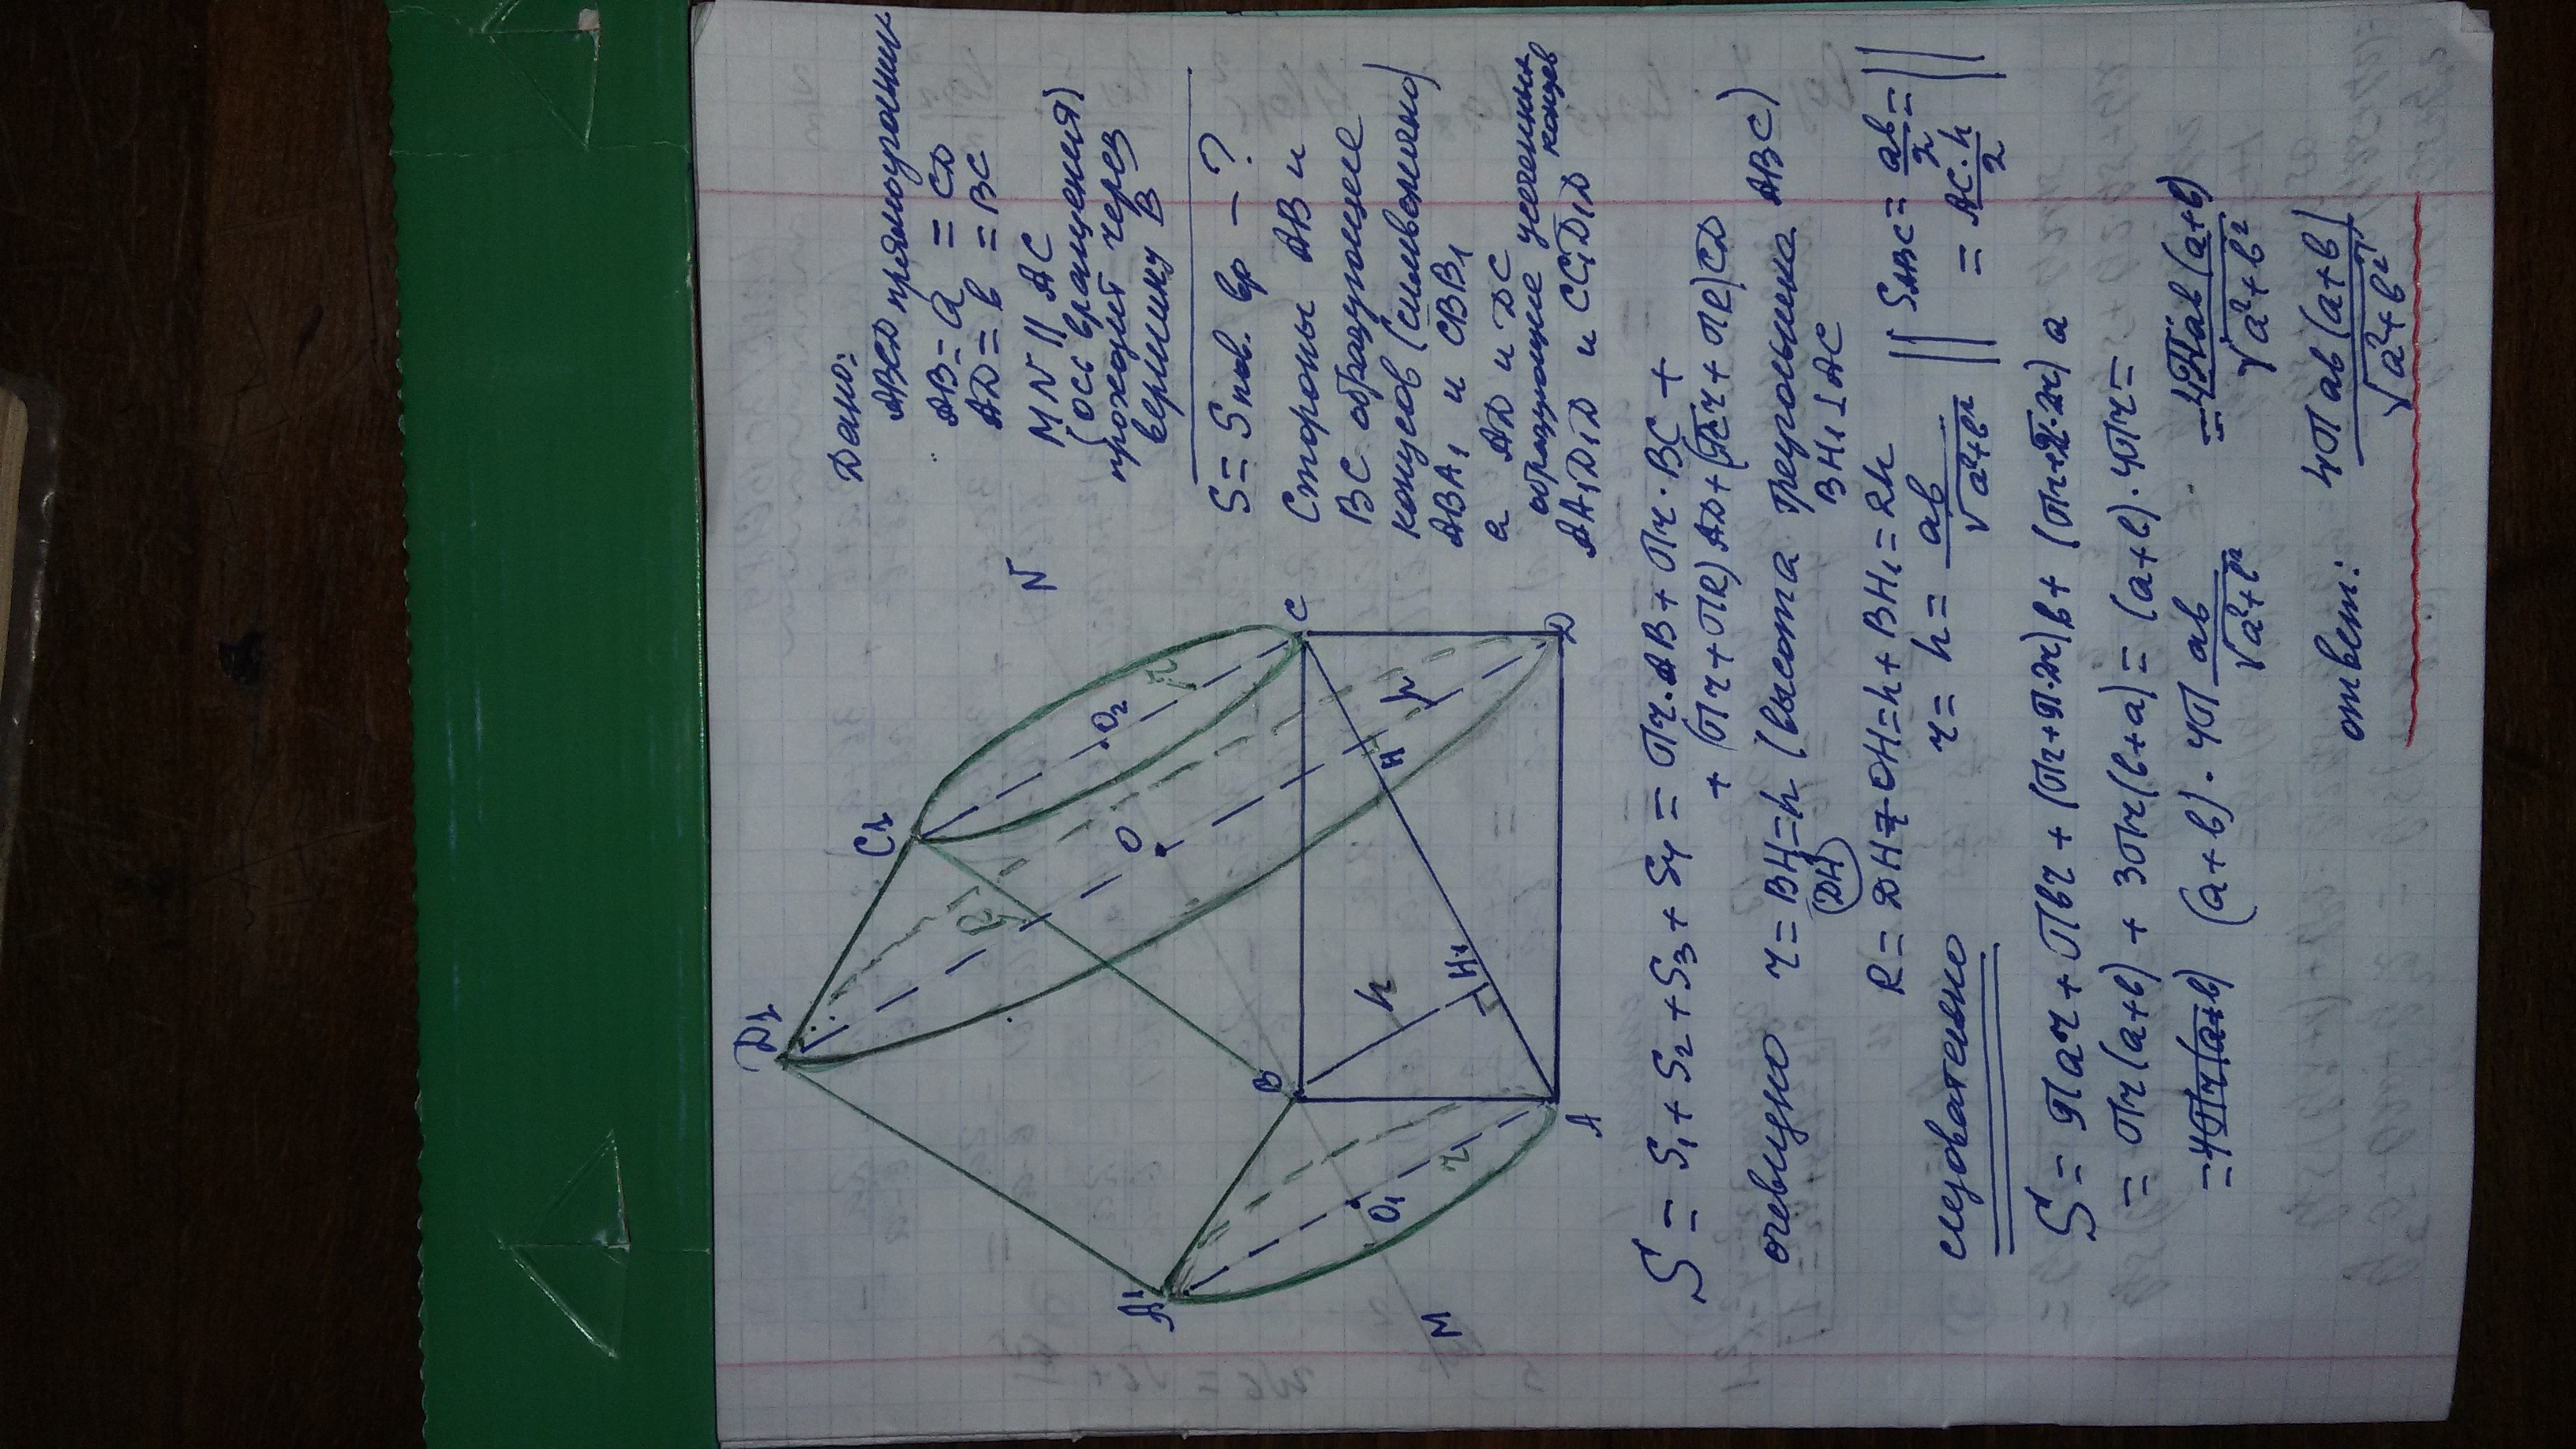 Дано:
ABCD прямоугольник
AB = a = CD
AD = b = BC
MN || AC
(ось вращения)
проходит через
вершину B
S = Sпов. вр — ?
Стороны AB и
BC образующие
конусов (символично)
ABA₁ и CBB₁
а AD и DC
образующие усеченных
конусов
AA₁D₁D и CC₁D₁D
N
C₁
D₁
O₂
r
C
O
R
H
h
D
B
h
H₁
A₁
O₁
r
A
M
S = S₁ + S₂ + S₃ + S₄ = πr·AB + πr·BC +
+ (πr + πR) AD + (πr + πR) CD
очевидно r = BH = h (высота треугольника ABC)
(DH) BH₁ ⊥ AC
R = DH + OH = h + BH₁ = 2h
следователено r = h = ab/√a²+b² || SABC = ab/2 = ||
= AC·h/2
S = πar + πbr + (πr+π·2r)b + (πr+π·2r) a
= πr(a+b) + 3πr(b+a) = (a+b)·4πr =
= 4πr(a+b) (a+b)·4π ab/√a²+b² = 4πab(a+b)/√a²+b²
ответ: 4πab(a+b)/√a²+b²